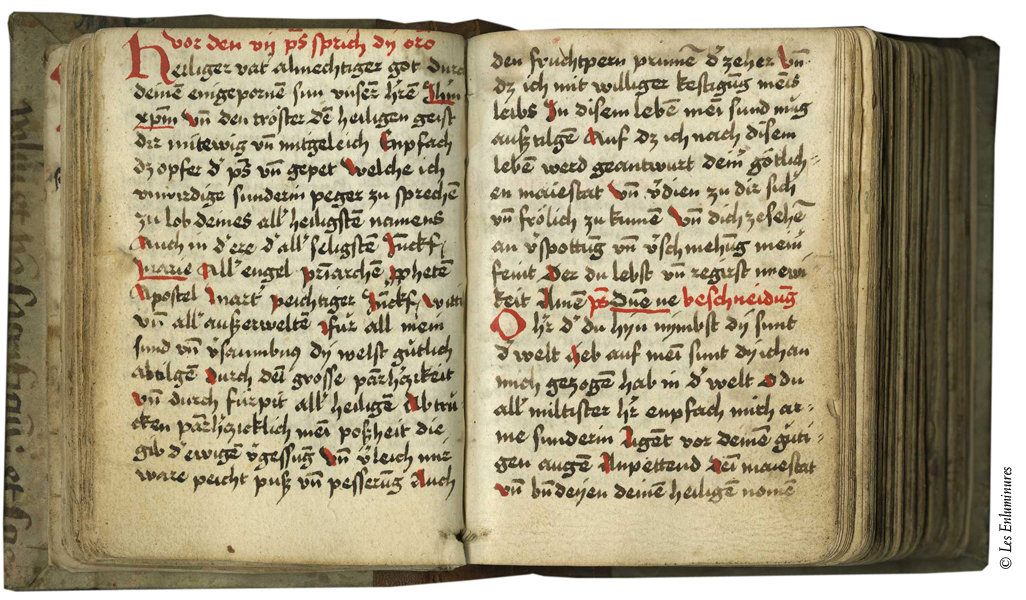 vor den vij ps̄ sprich dij oro
Heiliger vat almechtiger got durc
deinē eingepornē sun vnser̄ hr̄en Jhm̄
xp̄m vn̄ den tröster dē heiligen geist
dir mitewig vn̄ mitgeleich Enpfach
dz opfer d' ps̄ vn̄ gepet Welche ich
vnwirdige sunderin peger zu sprechē
zu lob deines all' heiligstē namens
Auch in d'ere d'all' seligstē Junckf
marie All' engel priarchē ꝓphetē
Apostel Mart' peichtiger Junckf Witti
vn̄ all' außerweltē für all mein
sund vn̄ v'saumbnus dij welst gutlich
abtilgē Durch dei grosse parmh'czikeit
vn̄ durch fürpit all' heiligē Abtru
cken parmh'czicklich mei poßheit die
gib d' ewigē v'gessūg vn̄ v'leich mir
ware peicht puß vn̄ pesserūg Auch
den fruchtpern prunnē d' zeher vn̄
dz ich mit williger kestigūg meīs
leibs In disem lebē mei sund mug
außtilgē Auf dz ich nach disem
lebē werd geantwurt deim götlich=
en maiestat vn̄ v'dien zu dir sich
vn̄ frölich zu kumē vn̄ dich zesehē
an v'spottūg vn̄ v'schmehūg mein'
feint Der du lebst vn̄ regirst in ewi
keit Amē ps̄ Dn̄e ne beschneidūg
O hr̄ d' du hyn nymbst dij sunt
d' welt heb auf mei sunt dij ich an
mich gezogen hab in d' welt O du
all' miltister hr̄ enpfach mich ar=
me sunderin ligēt vor deinē guti=
gen augē Anpettend dei maiestat
vn̄ deinē heiligen nomē
© Les Enluminures